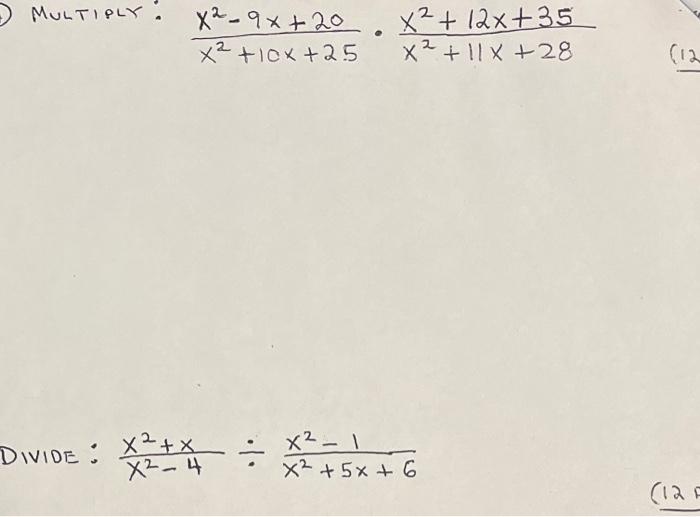 ) MULTIPLY: x² - 9x + 20 / x² + 10x + 25 · x² + 12x + 35 / x² + 11x + 28 (12
DIVIDE: x² + x / x² - 4 ÷ x² - 1 / x² + 5x + 6
(12 P